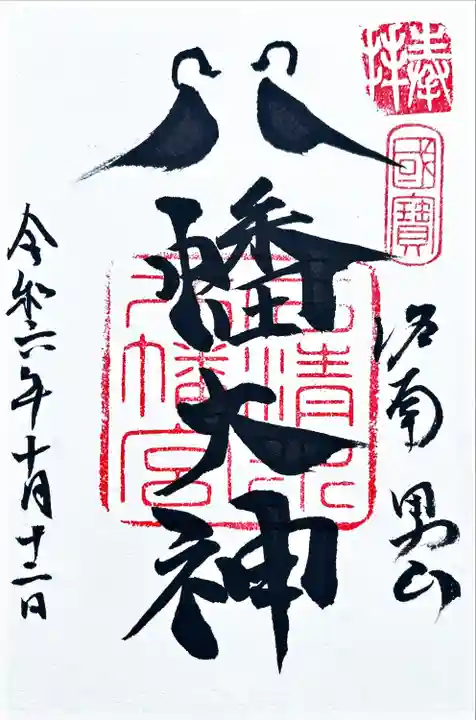 奉拝
國寶
洛南 男山
八幡大神
石清水八幡宮
令和六年十月十二日